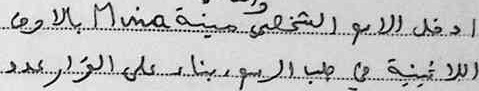 ادخل الاسم الشخصي مينة Mina بالاحرف
اللاتينية في طلب الرسم، بناء على القرار عدد